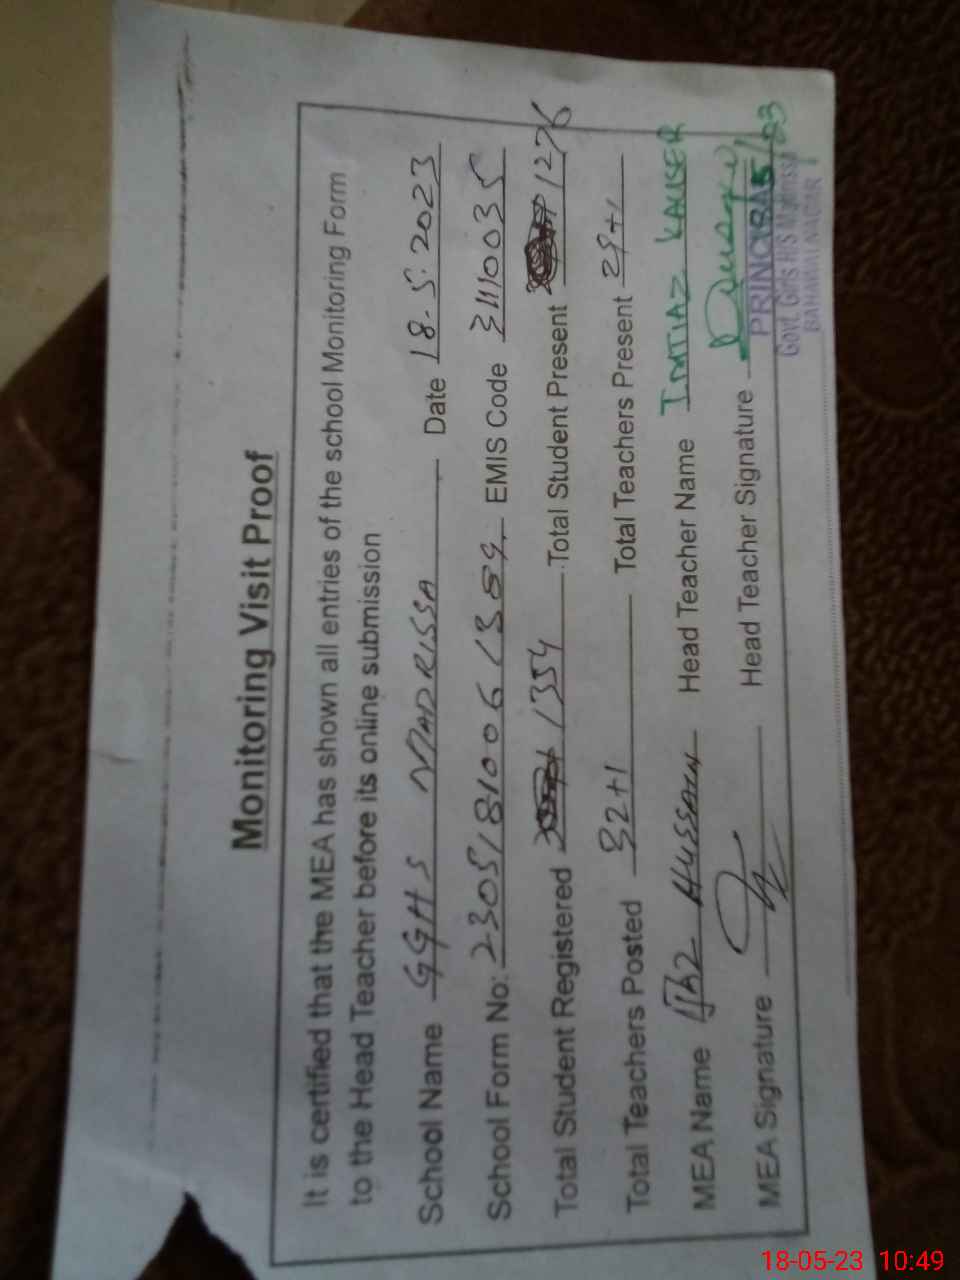 Monitoring Visit Proof
It is certified that the MEA has shown all entries of the school Monitoring Form
to the Head Teacher before its online submission
School Name GGHS MADRISSA Date 18-5-2023
School Form No: 2305181006 1389 EMIS Code 31110035
Total Student Registered 1354 Total Student Present 1276
Total Teachers Posted 32+1 Total Teachers Present 29+1
MEA Name Ijaz Hussain Head Teacher Name IMTIAZ KAUSER
MEA Signature Head Teacher Signature
PRINCIPAL
Govt. Girls H/S Madrissa
BAHAWALNAGAR
18-05-23 10:49